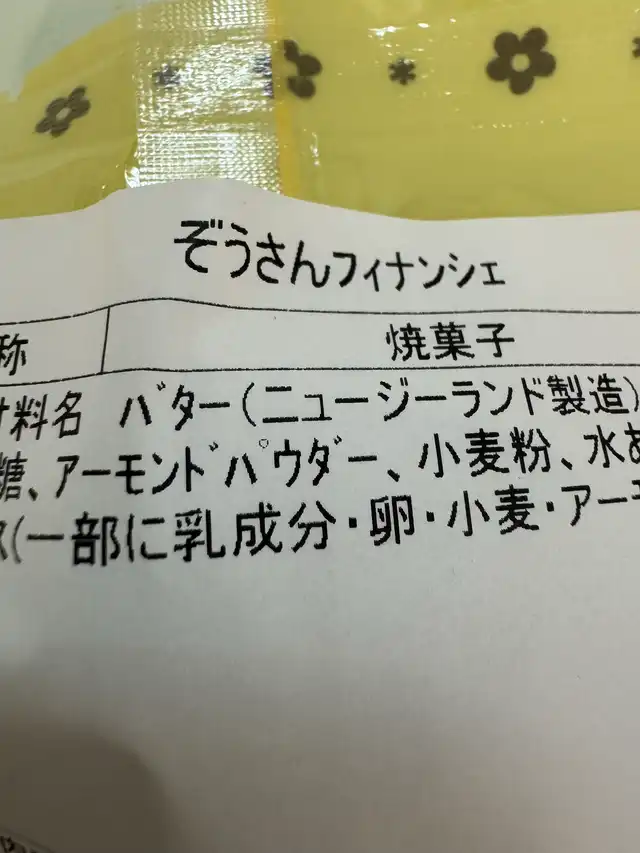 ぞうさんフィナンシェ
称 焼菓子
材料名 バター(ニュージーランド製造)
糖、アーモンドパウダー、小麦粉、水あ
(一部に乳成分・卵・小麦・アー